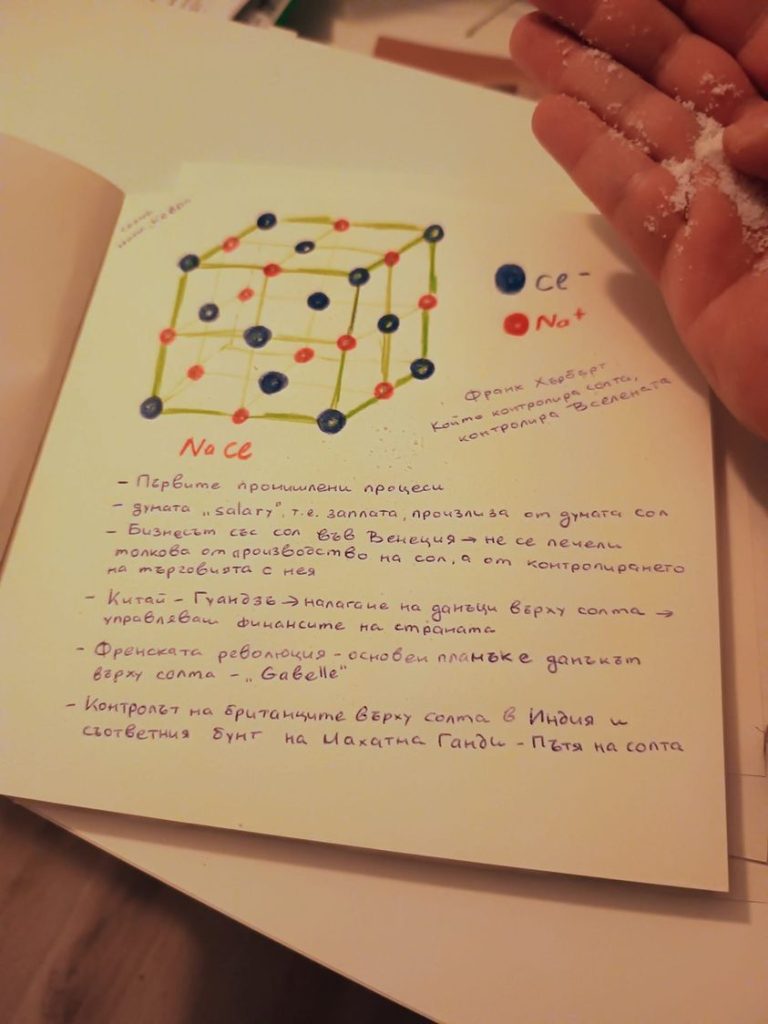 Cl⁻
Na⁺
Франк Хърбърт
Който контролира солта,
контролира Вселената
NaCl
- Първите промишлени процеси
- думата „salary", т.е. заплата, произлиза от думата сол
- Бизнесът със сол във Венеция → не се печели
толкова от производство на сол, а от контролирането
на търговията с нея
- Китай - Гуандзъ → налагане на данъци върху солта →
управляваш финансите на страната
- Френската революция - основен пламък е данъкът
върху солта - „Gabelle"
- Контролът на британците върху солта в Индия и
съответния бунт на Махатма Ганди - Пътя на солта